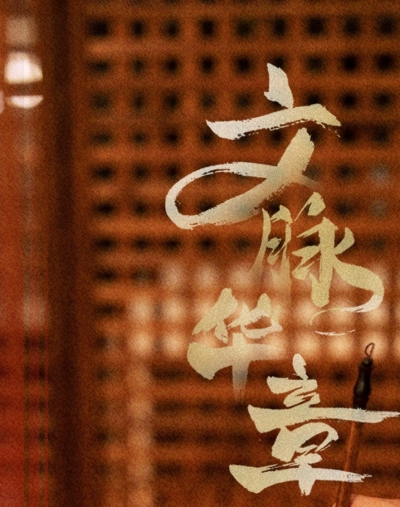 文脉华章